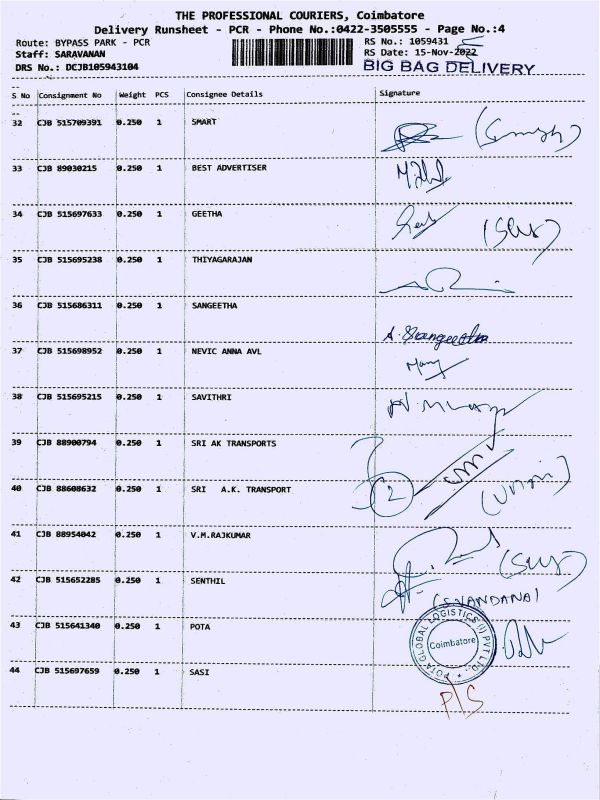 THE PROFESSIONAL COURIERS, Coimbatore
Delivery Runsheet - PCR - Phone No.:0422-3505555 - Page No.:4
Route: BYPASS PARK - PCR
RS No.: 1059431
Staff: SARAVANAN
RS Date: 15-Nov-2022
DRS No.: DCJB105943104
BIG BAG DELIVERY
S No Consignment No Weight PCS Consignee Details Signature
32 CJB 515709391 0.250 1 SMART
33 CJB 89030215 0.250 1 BEST ADVERTISER
34 CJB 515697633 0.250 1 GEETHA
35 CJB 515695238 0.250 1 THIYAGARAJAN
36 CJB 515686311 0.250 1 SANGEETHA
A. Sangeetha
37 CJB 515698952 0.250 1 NEVIC ANNA AVL
38 CJB 515695215 0.250 1 SAVITHRI
39 CJB 88900794 0.250 1 SRI AK TRANSPORTS
40 CJB 88608632 0.250 1 SRI A.K. TRANSPORT
2
41 CJB 88954042 0.250 1 V.M.RAJKUMAR
42 CJB 515652285 0.250 1 SENTHIL
43 CJB 515641340 0.250 1 POTA
POTA GLOBAL LOGISTICS (I) PVT LTD.
Coimbatore
44 CJB 515697659 0.250 1 SASI
P/S